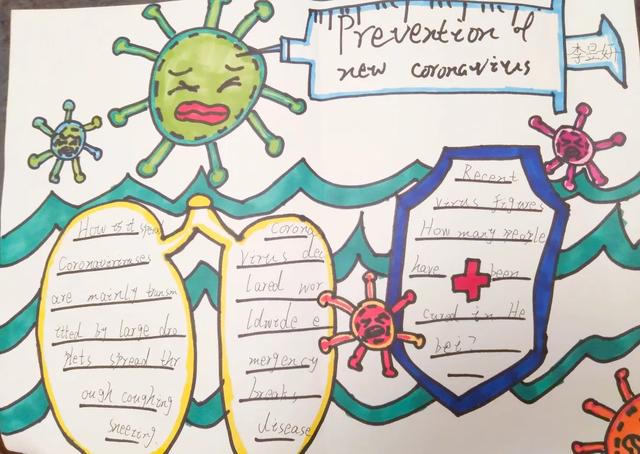 Prevention of
new coronavirus
How is it spead
Coronaviruses
are mainly transm
itted by large dro
plets spread thr
ough coughing
sneezing.
Corona
virus dec
lared wor
ldwide e
mergency
breaks,
disease
Recent
virus figures
How many people
have been
cured in He
bei?